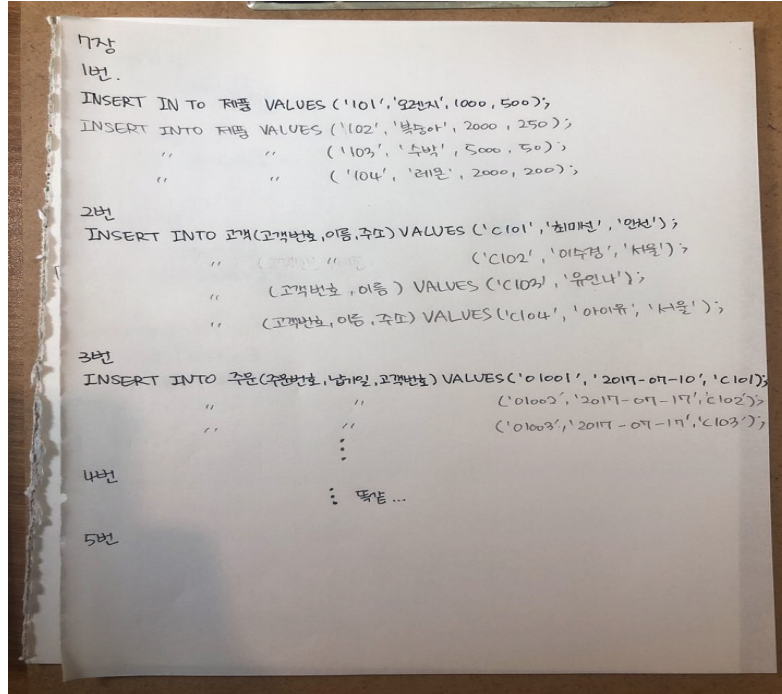 7장
1번.
INSERT IN TO 제품 VALUES ('101','오렌지', 1000, 500);
INSERT INTO 제품 VALUES ('102', '복숭아', 2000, 250);
〃 〃 ('103', '수박', 5000, 50);
〃 〃 ('104', '레몬', 2000, 200);
2번
INSERT INTO 고객(고객번호,이름,주소) VALUES ('C101','최미선', '인천');
〃 〃 ('C102', '이수경', '서울');
〃 (고객번호, 이름) VALUES ('C103', '유인나');
〃 (고객번호, 이름, 주소) VALUES ('C104', '아이유', '서울');
3번
INSERT INTO 주문(주문번호,납기일,고객번호) VALUES('O1001', '2017-07-10', 'C101);
〃 〃 ('O1002','2017-07-17','C102');
〃 〃 ('O1003','2017-07-17','C103');
⋮
4번
⋮ 똑같...
5번